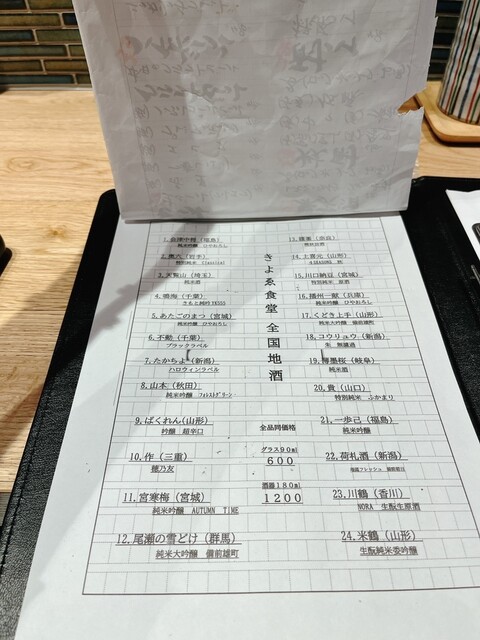 1.会津中将（福島）
純米吟醸　ひやおろし
2.菊六（岩手）
特別純米　Classical
3.天覧山（埼玉）
純米酒
4.鳴海（千葉）
5.あたごのまつ（宮城）
純米吟醸　ひやおろし
6.不動（千葉）
ブラックラベル
7.たかちよ（新潟）
ハロウィンラベル
8.山本（秋田）
純米吟醸　フォレストグリーン
9.ばくれん（山形）
吟醸　超辛口
10.作（三重）
穂乃友
11.宮寒梅（宮城）
純米吟醸　AUTUMN TIME
12.尾瀬の雪どけ（群馬）
純米大吟醸　備前雄町
きよゑ食堂　全国地酒
全品同価格
グラス90ml
600
酒器180ml
1200
13.（奈良）
14.上喜元（山形）
15.川口納豆（宮城）
特別純米
16.播州一献（兵庫）
純米吟醸　ひやおろし
17.くどき上手（山形）
純米大吟醸　備前雄町
18.コウリュウ（新潟）
生　無濾過
19.（岐阜）
純米酒
20.貴（山口）
特別純米　ふかまり
21.一歩己（福島）
純米吟醸
22.荷札酒（新潟）
23.川鶴（香川）
NORA　生酛生原酒
24.米鶴（山形）